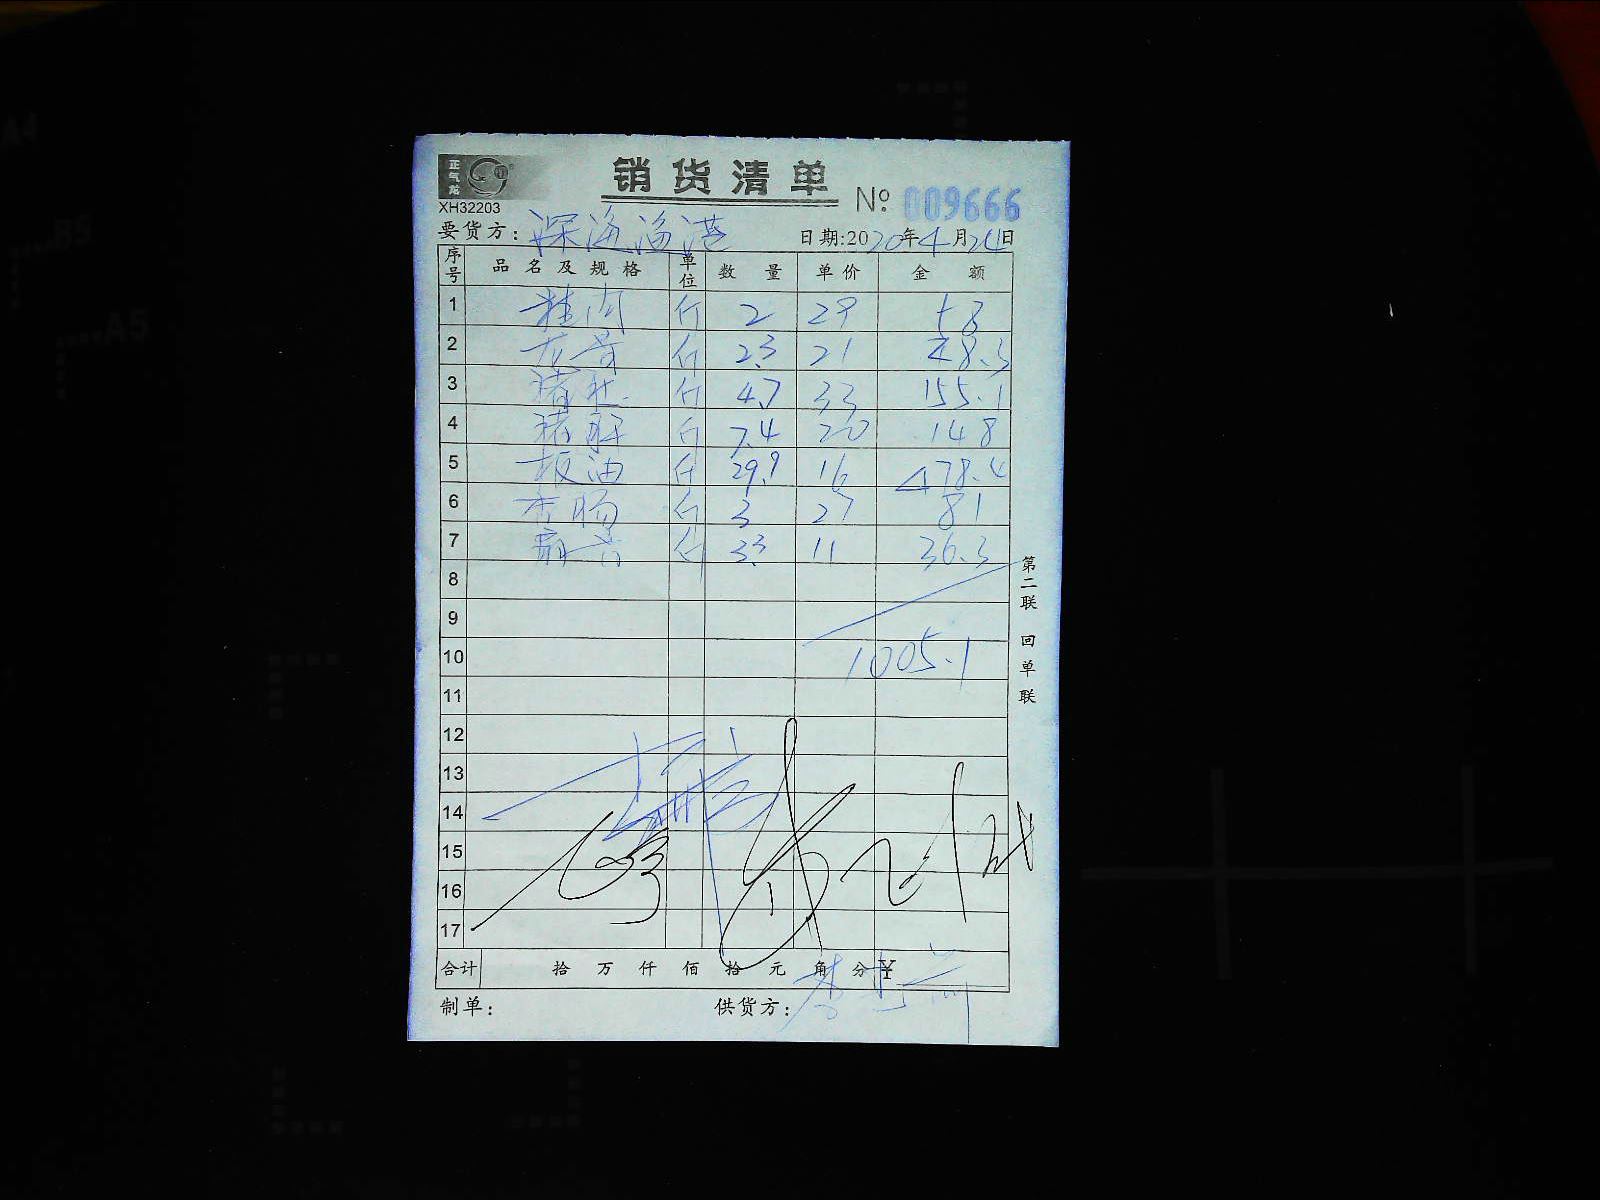 正气龙
销货清单
XH32203
№ 009666
要货方: 深海渔港 日期:2020年4月24日
序号 品名及规格 单位 数量 单价 金额
1 桂肉 斤 2 29 58
2 龙骨 斤 2.3 21 48.3
3 猪肚 斤 4.7 33 155.1
4 猪肝 斤 7.4 20 148
5 板油 斤 29.9 16 478.4
6 香肠 斤 3 27 81
7 扇骨 斤 3.3 11 36.3
8
9
10 1005.1
11
12
13
14
15
16
17
合计 拾 万 仟 佰 拾 元 角 分 ¥
制单: 供货方:
第二联 回单联
A4
B5
A5